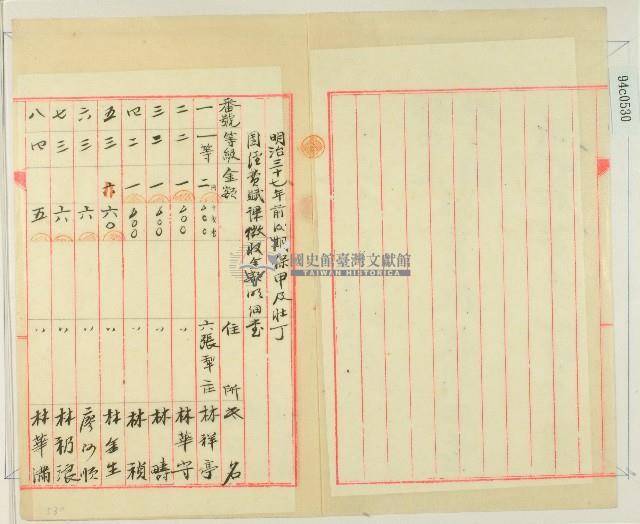 明治三十七年前後期保甲及壯丁
團經費賦課徵收金額明細書
番號 等級 金額 住所 氏名
一 一等 二 六張犁庄 林祥亭
二 二 一 〃 林華守
三 二 一 〃 林疇
四 二 一 〃 林禎
五 三 六〇 〃 林金生
六 三 六 〃 廖阿順
七 三 六 〃 林
八 四 五 〃 林華滿
94c0530
國史館臺灣文獻館
TAIWAN HISTORICA